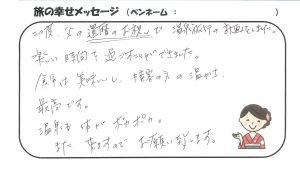 旅の幸せメッセージ （ペンネーム： ）
この度、父の還暦のお祝いで 温泉旅行の計画をしました。
楽しい時間を過ごすことができました。
食事は美味しいし、接客の方の温かさ
最高です。
温泉も体がポカポカ。
また 来ますので お願い致します。